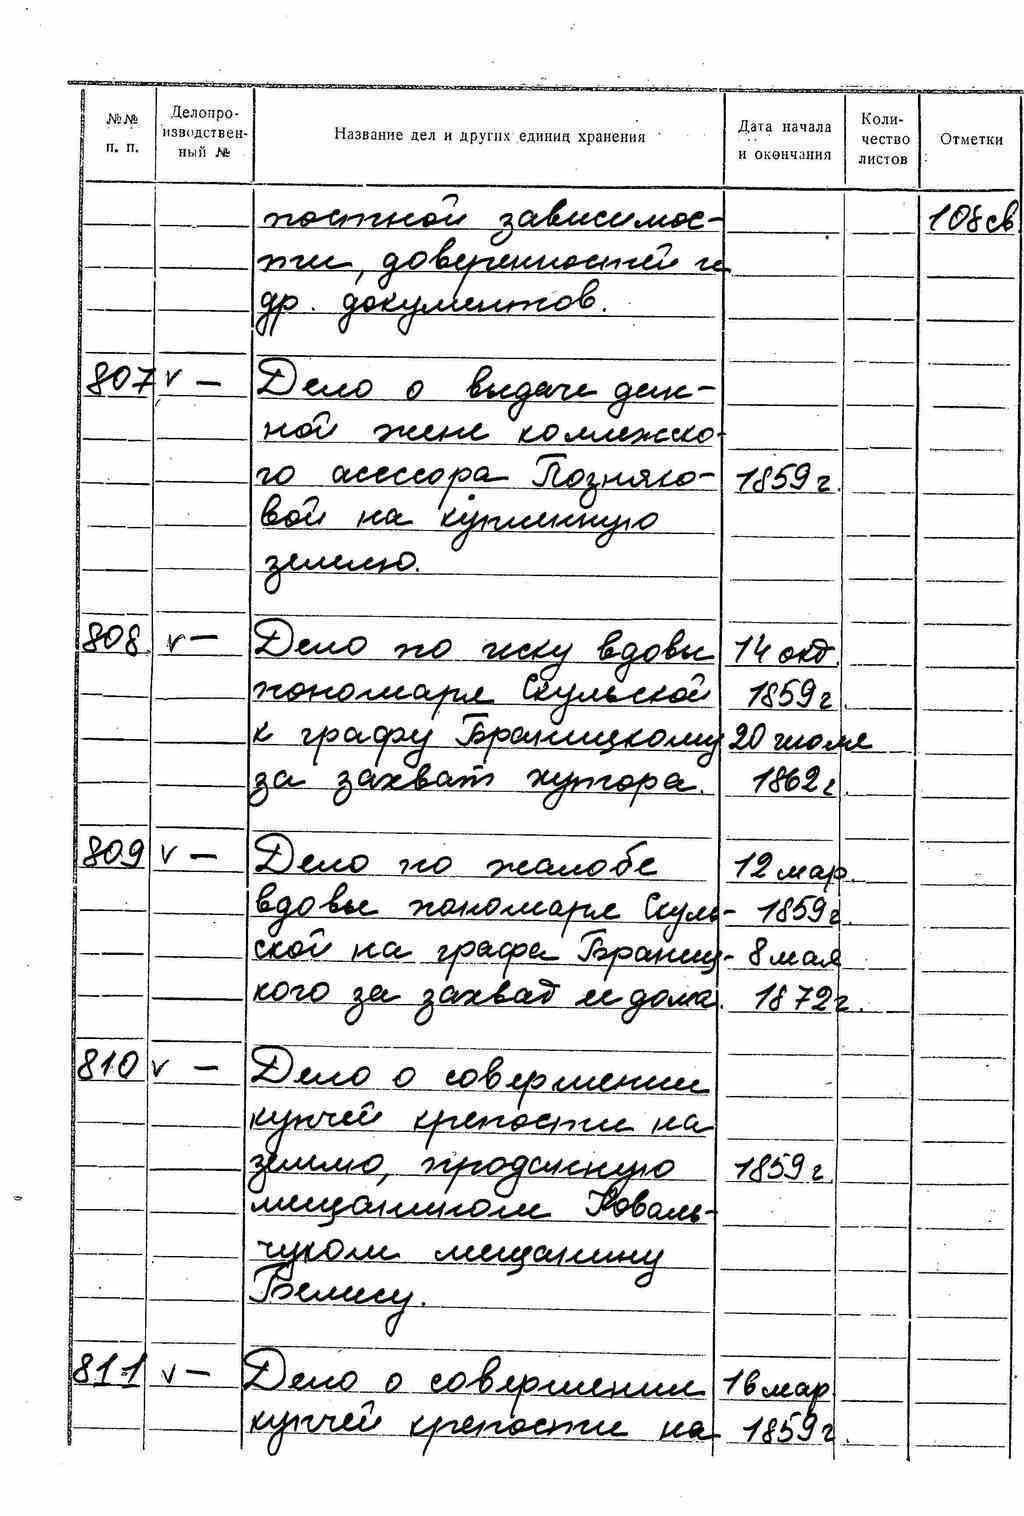 №№ п. п. Делопро-изводствен-ный № Название дел и других единиц хранения Дата начала и окончания Коли-чество листов Отметки
постной зависимос- 108 св
ти, доверенностей и
др. документов.
807 v — Дело о выдаче дан-
ной жене коллежско-
го асессора Позняко- 1859 г.
вой на купленную
землю.
808. v — Дело по иску вдовы 14 окт.
пономаря Скульской 1859 г
к графу Браницкому 20 июля
за захват хутора. 1862 г
809 v — Дело по жалобе 12 мар.
вдовы пономаря Скуль- 1859 г.
ской на графа Браниц- 8 мая
кого за захват ее дома. 1872 г.
810 v — Дело о совершении
купчей крепости на
землю, проданную 1859 г.
мещанином Коваль-
чуком мещанину
Белису.
811 v — Дело о совершении 16 мар
купчей крепости на 1859 г.